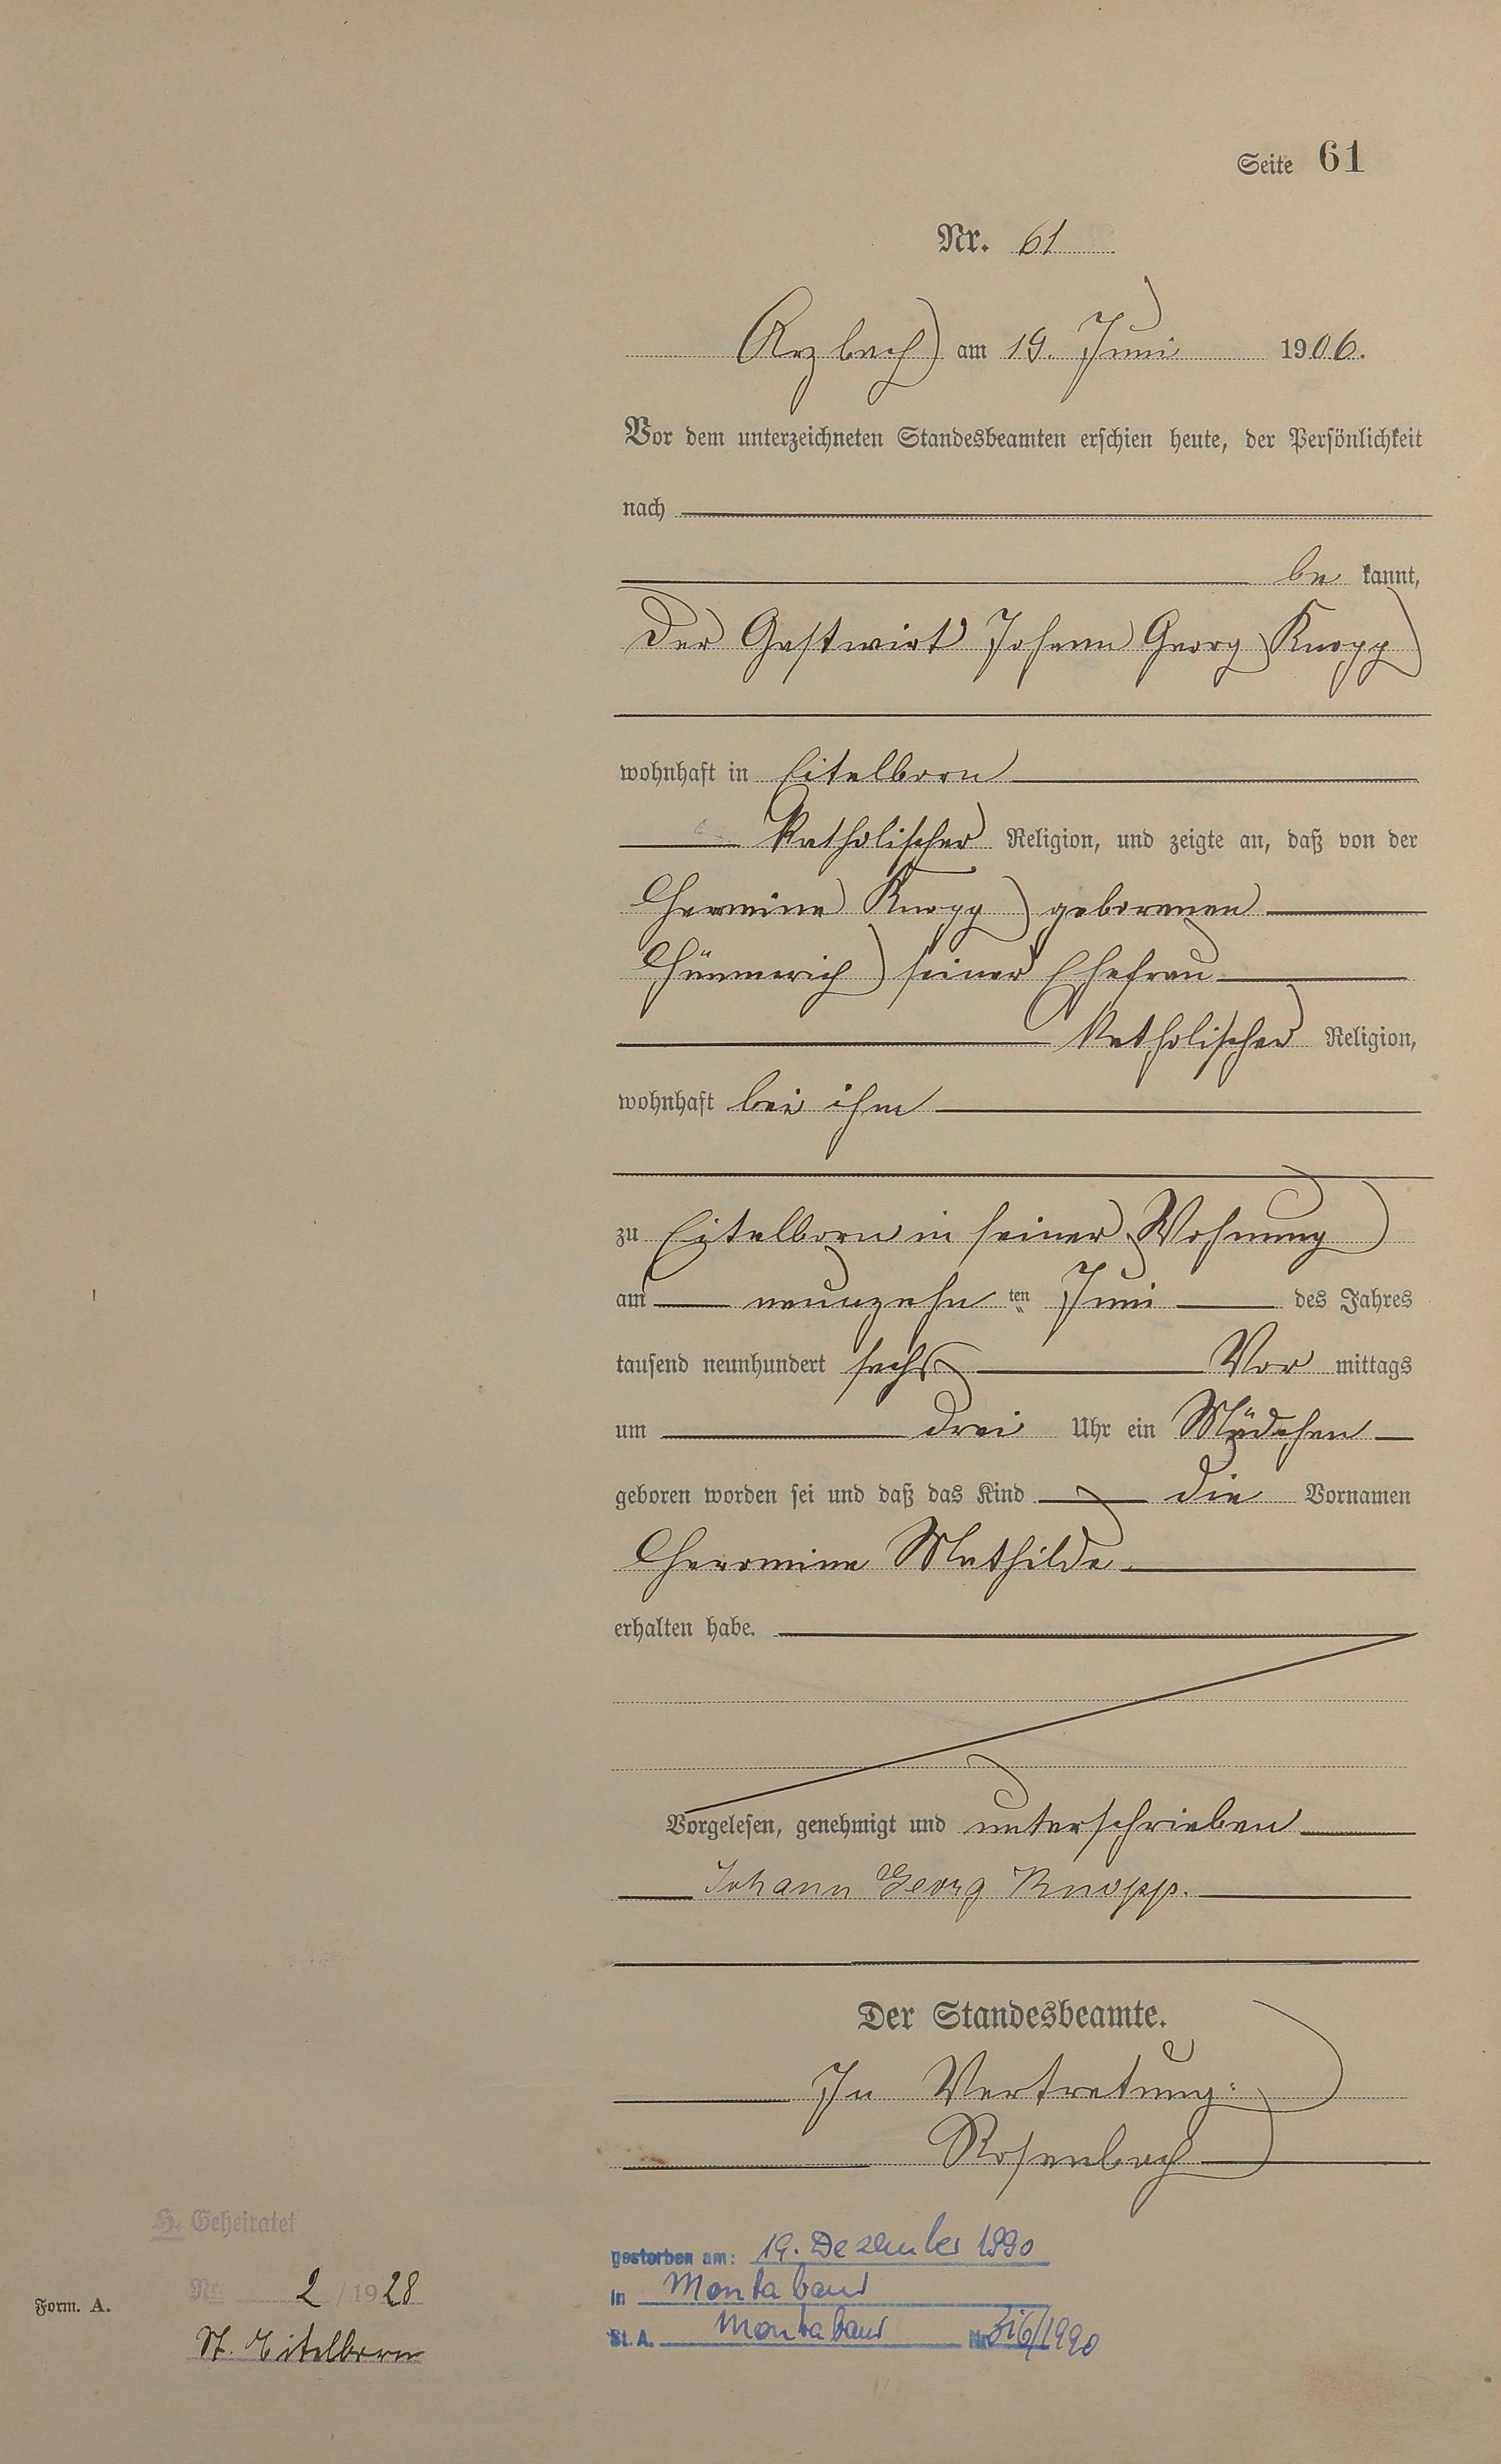 Seite 61
Nr. 61
Arzbach am 19. Juni 1906.
Vor dem unterzeichneten Standesbeamten erschien heute, der Persönlichkeit
nach
be kannt,
der Gastwirt Johann Georg Knopp
wohnhaft in Eitelborn
katholischer Religion, und zeigte an, daß von der
Hermine Knopp geborenen
Hümmerich seiner Ehefrau
katholischer Religion,
wohnhaft bei ihm
zu Eitelborn in seiner Wohnung
am neunzehn ten Juni des Jahres
tausend neunhundert sechs Vor mittags
um drei Uhr ein Mädchen
geboren worden sei und daß das Kind die Vornamen
Hermine Mathilde
erhalten habe.
Vorgelesen, genehmigt und unterschrieben
Johann Georg Knopp.
Der Standesbeamte.
In Vertretung:
Rosenbach
H. Geheiratet
Nr. 2/1928
St. Eitelborn
Form. A.
gestorben am: 19. Dezember 1990
in Montabaur
St. A. Montabaur Nr. 316/1990